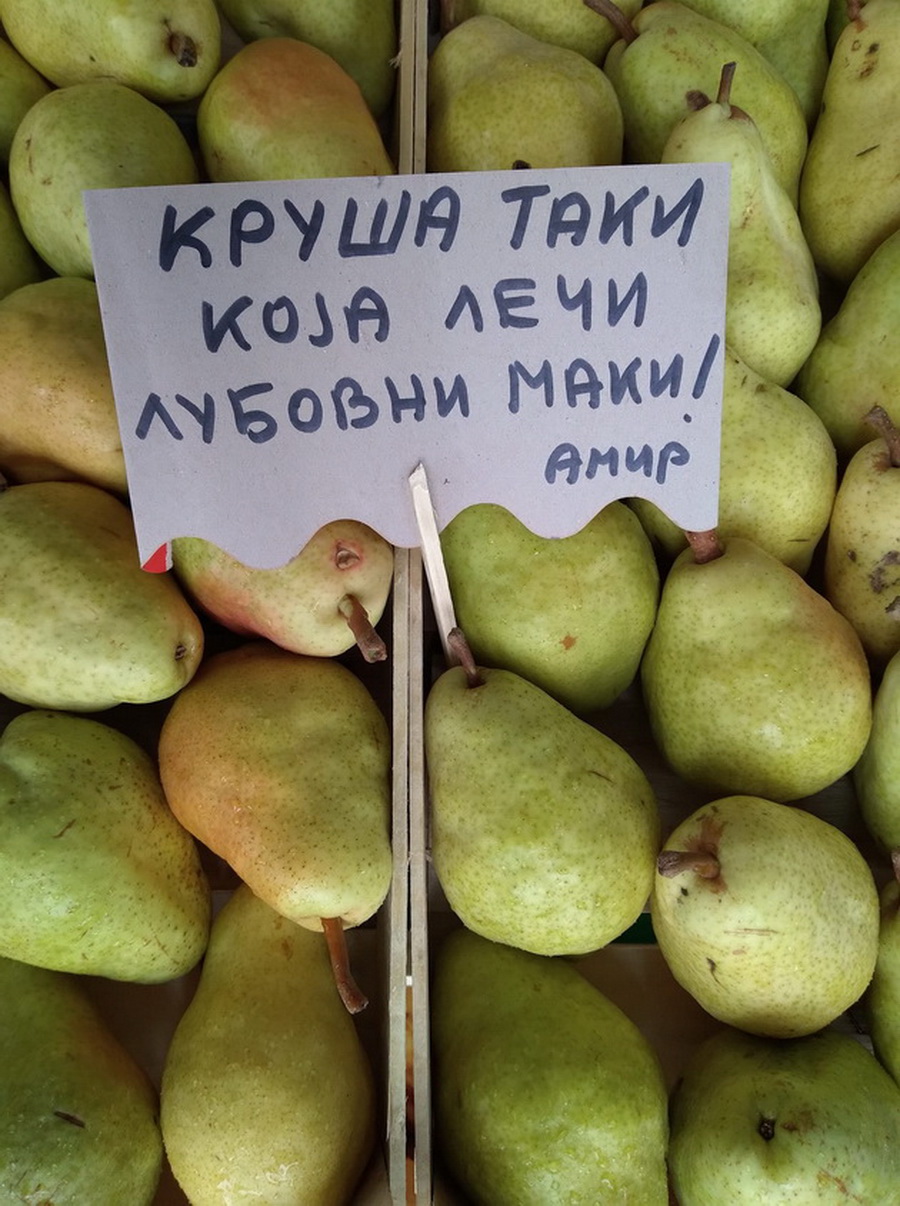 КРУША ТАКИ
КОЈА ЛЕЧИ
ЛУБОВНИ МАКИ!
АМИР